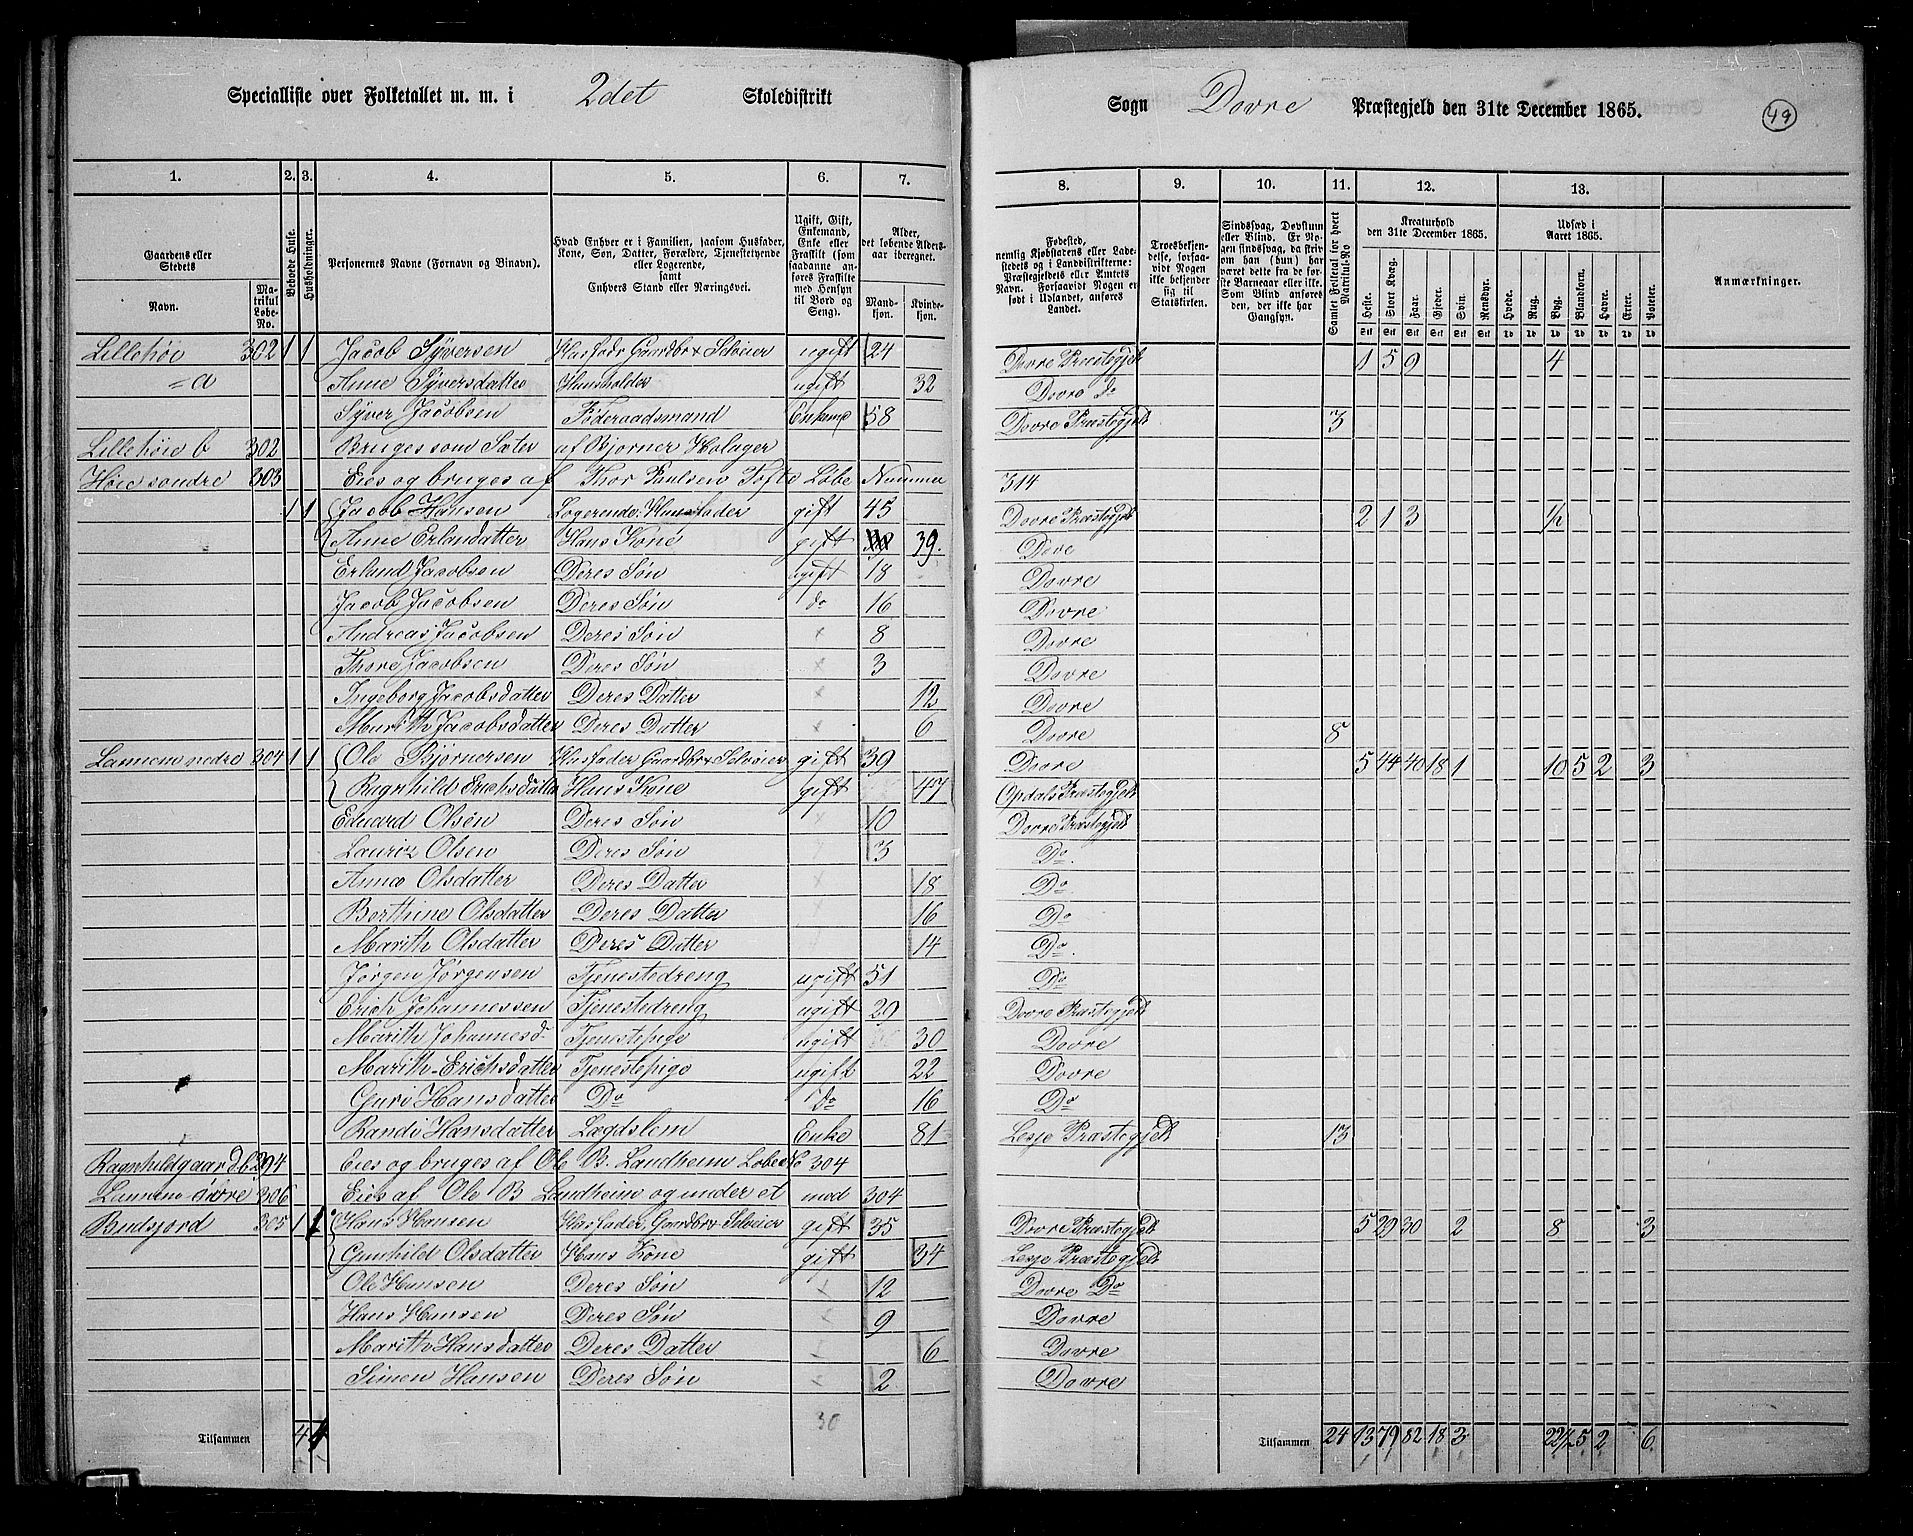 Specialliste over Folketallet m. m. i 2det Skoledistrikt Sogn Dovre Præstegjeld den 31te December 1865. 49
1. 2. 3. 4. 5. 6. 7. 8. 9. 10. 11. 12. 13.
Gaardens eller Stedets
Navn.
Matrikul Løbe-No.
Beboede Huse.
Husholdninger.
Personernes Navne (Fornavn og Binavn).
Hvad Enhver er i Familien, saasom Husfader, Kone, Søn, Datter, Forældre, Tjenestetyende eller Logerende, samt Enhvers Stand eller Næringsvei.
Ugift, Gift, Enkemand, Enke eller Fraskilt (som saadanne anføres Fraskilte med Hensyn til Bord og Seng).
Alder, det løbende Alders-aar iberegnet.
Mandkjøn. Kvindekjøn.
Fødested, nemlig Kjøbstadens eller Ladestedets og i Landdistrikterne: Præstegjeldets eller Amtets Navn. Forsaavidt Nogen er født i Udlandet, anføres Landet.
Troesbekjendelse, forsaavidt Nogen ikke bekjender sig til Statskirken.
Sindssvag, Døvstum eller Blind. Er Nogen sindssvag, da skrives om han (hun) har været dette fra de første Barneaar eller ikke. Som Blind anføres den, der ikke har Gangsyn.
Samlet Folketal for hvert Matrikul-No
Kreaturhold den 31te December 1865.
Heste. Stort Kvæg. Faar. Gjeder. Svin. Rensdyr.
Udsæd i Aaret 1865.
Hvede. Rug. Byg. Blandkorn. Havre. Erter. Poteter.
Anmærkninger.
Lillehøi 302 1 1 Jacob Syversen Husfader Gaardbr & Selveier ugift 24 Dovre Præstegjeld 1 5 9 4
= a Anne Syversdatter Husholder ugift 32 Dovre Do
Syver Jacobsen Føderaadsmand Enkemd 58 Dovre Præstegjeld 3
Lillehøie b 302 Bruges som Sæter af Bjørner Holager
Høie søndre 303 Eies og bruges af Thor Paulsen Tofte Løbe Nummer 314
1 1 Jacob Hansen Logerende Husfader gift 45 Dovre Præstegjeld 2 1 3 1/2
Anne Erlandatter Hans Kone gift 39. Dovre
Erland Jacobsen Deres Søn ugift 18 Dovre
Jacob Jacobsen Deres Søn do 16 Dovre
Andreas Jacobsen Deres Søn x 8 Dovre
Thore Jacobsen Deres Søn x 3 Dovre
Ingeborg Jacobsdatter Deres Datter x 12 Dovre
Marith Jacobsdatter Deres Datter x 6 Dovre 8
Lannem nedre 304 1 1 Ole Bjørnersen Husfader Gaardbr & Selveier gift 39 Dovre 5 44 40 18 1 10 5 2 3
Ragnhild Erichsdatter Hans Kone gift 47 Opdals Præstegjeld
Eduard Olsen Deres Søn 10 Dovre Præstegjeld
Lauriz Olsen Deres Søn 3 Do.
Anne Olsdatter Deres Datter x 18 Do.
Berthine Olsdatter Deres Datter 16 Do
Marith Olsdatter Deres Datter 14 Do.
Jørgen Jørgensen Tjenestedreng ugift 51 Do
Erich Johannessen Tjenestedreng ugift 29 Dovre Præstegjeld
Marith Johannesd- Tjenestepige ugift 30 Dovre
Marith Erichsdatter Tjenestepige ugift 22 Dovre
Guri Hansdatter Do Do 16 Do
Randi Hansdatter Lægdslem Enke 81 Lesje Præstegjeld 13
Ragnhildgaard b 294 Eies og bruges af Ole B. Landheim Løbe No 304
Lannem øvre 306 Eies af Ole B Landheim og under et med 304
Budsjord 305 1 1 Hans Hansen Husfader, Gaardbr & Selveier gift 35 Dovre Præstegjeld 5 29 30 2 8 3
Gunhild Olsdatter Hans Kone gift 34 Lesje Præstegjeld
Ole Hansen Deres Søn x 12 Dovre Do
Hans Hansen Deres Søn 9 Dovre
Marith Hansdatter Deres Datter 6 Dovre
Simen Hansen Deres Søn 2 Dovre
30
Tilsammen 4 4 Tilsammen 24 13 79 82 18 3 22 1/2 5 2 6